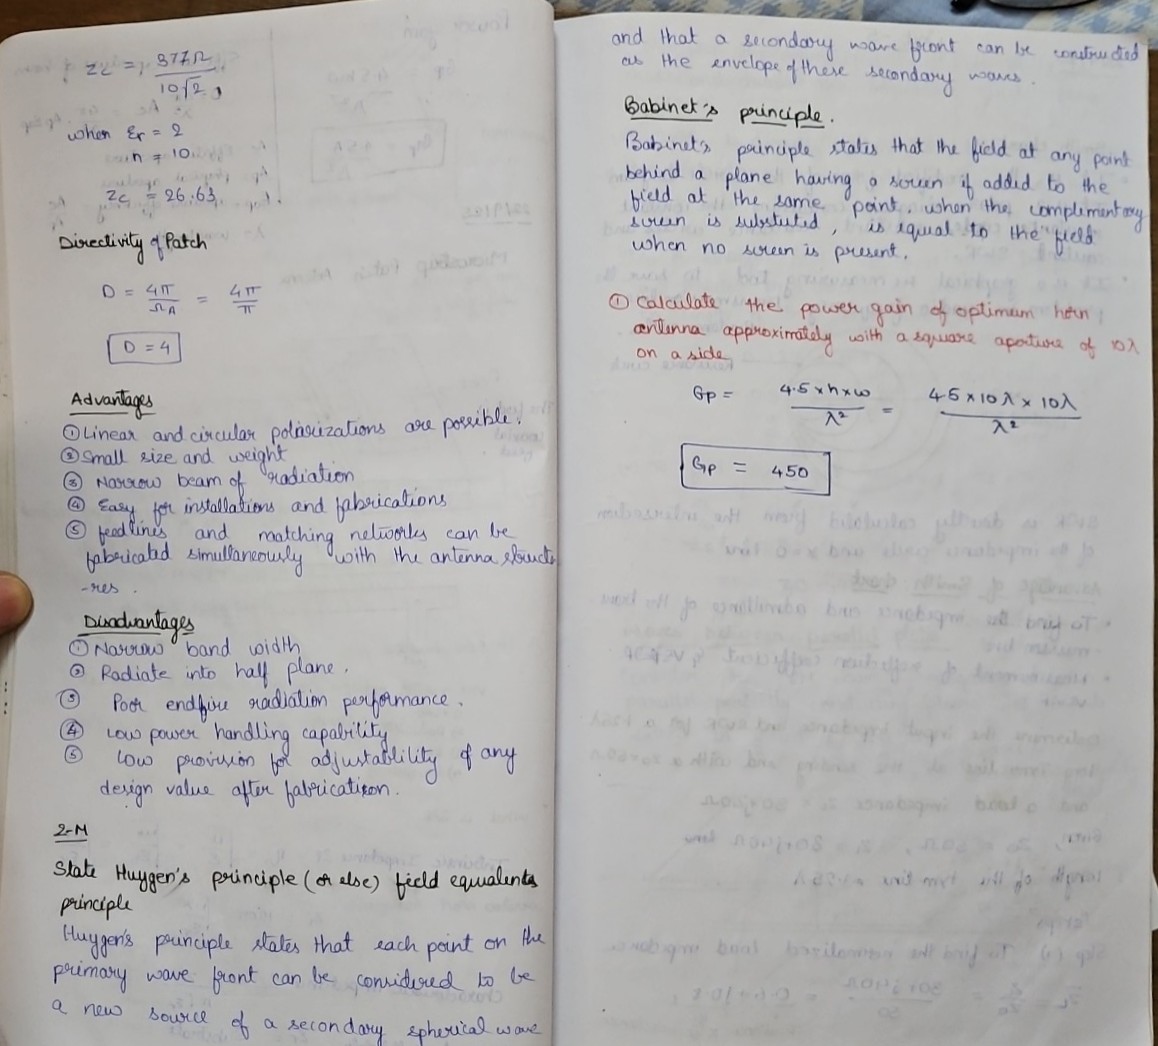 Zc = 377Ω / 10√2
when εr = 2
n = 10
Zc = 26.63
Directivity of Patch
D = 4π/ΩA = 4π/π
D = 4
Advantages
① Linear and circular polarizations are possible.
② Small size and weight
③ Narrow beam of radiation
④ Easy for installations and fabrications
⑤ feedlines and matching networks can be
fabricated simultaneously with the antenna structu
-res.
Disadvantages
① Narrow band width
② Radiate into half plane.
③ Poor endfire radiation performance.
④ Low power handling capability
⑤ Low provision for adjustablility of any
design value after fabrication.
2-M
State Huygen's principle (or else) field equalents
principle
Huygen's principle states that each point on the
primary wave front can be considered to be
a new source of a secondary spherical wave
and that a secondary wave front can be constructed
as the envelope of these secondary waves.
Babinet's principle.
Babinet's principle states that the field at any point
behind a plane having a screen if added to the
field at the same point, when the complimentary
screen is substuted, is equal to the field
when no screen is present.
① Calculate the power gain of optimum horn
antenna approximately with a square aperture of 10λ
on a side
Gp = 4.5 x h x w / λ² = 4.5 x 10λ x 10λ / λ²
Gp = 450